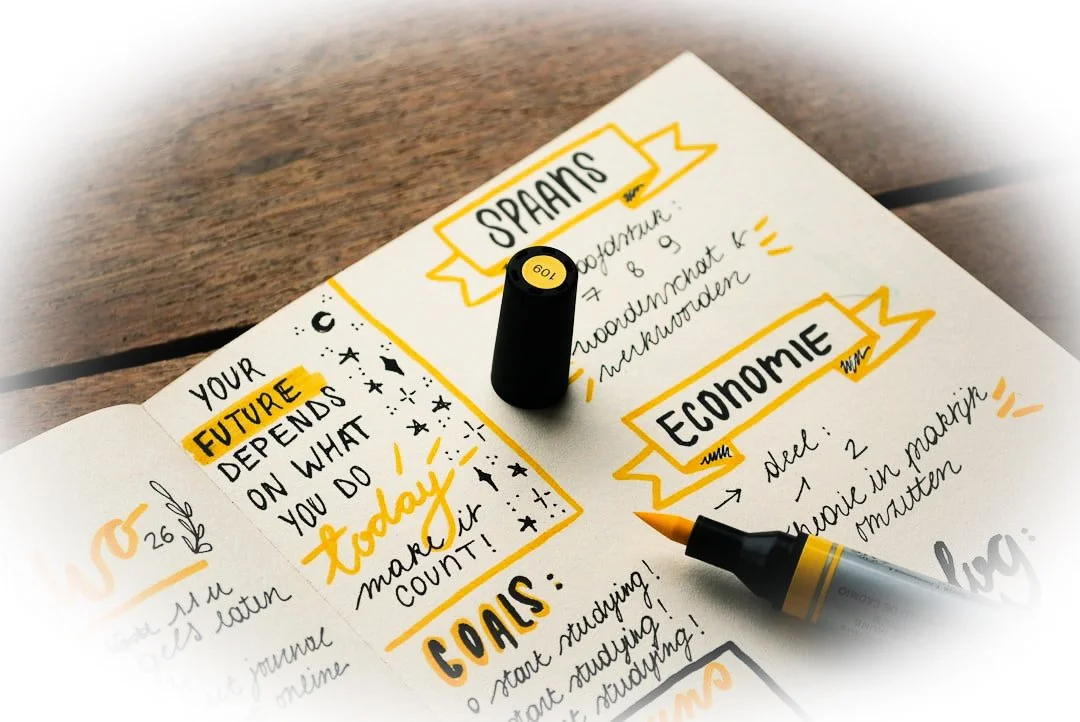 wo
26
11 u
laten
journal
online
YOUR
FUTURE
DEPENDS
ON WHAT
YOU DO
today
make it
COUNT!
GOALS:
o start studying!
start studying!
studying!
SPAANS
hoofdstuk:
7 8 9
woordenschat &
werkwoorden
109
ECONOMIE
→ deel:
1 2
theorie in praktijk
omzetten
log: